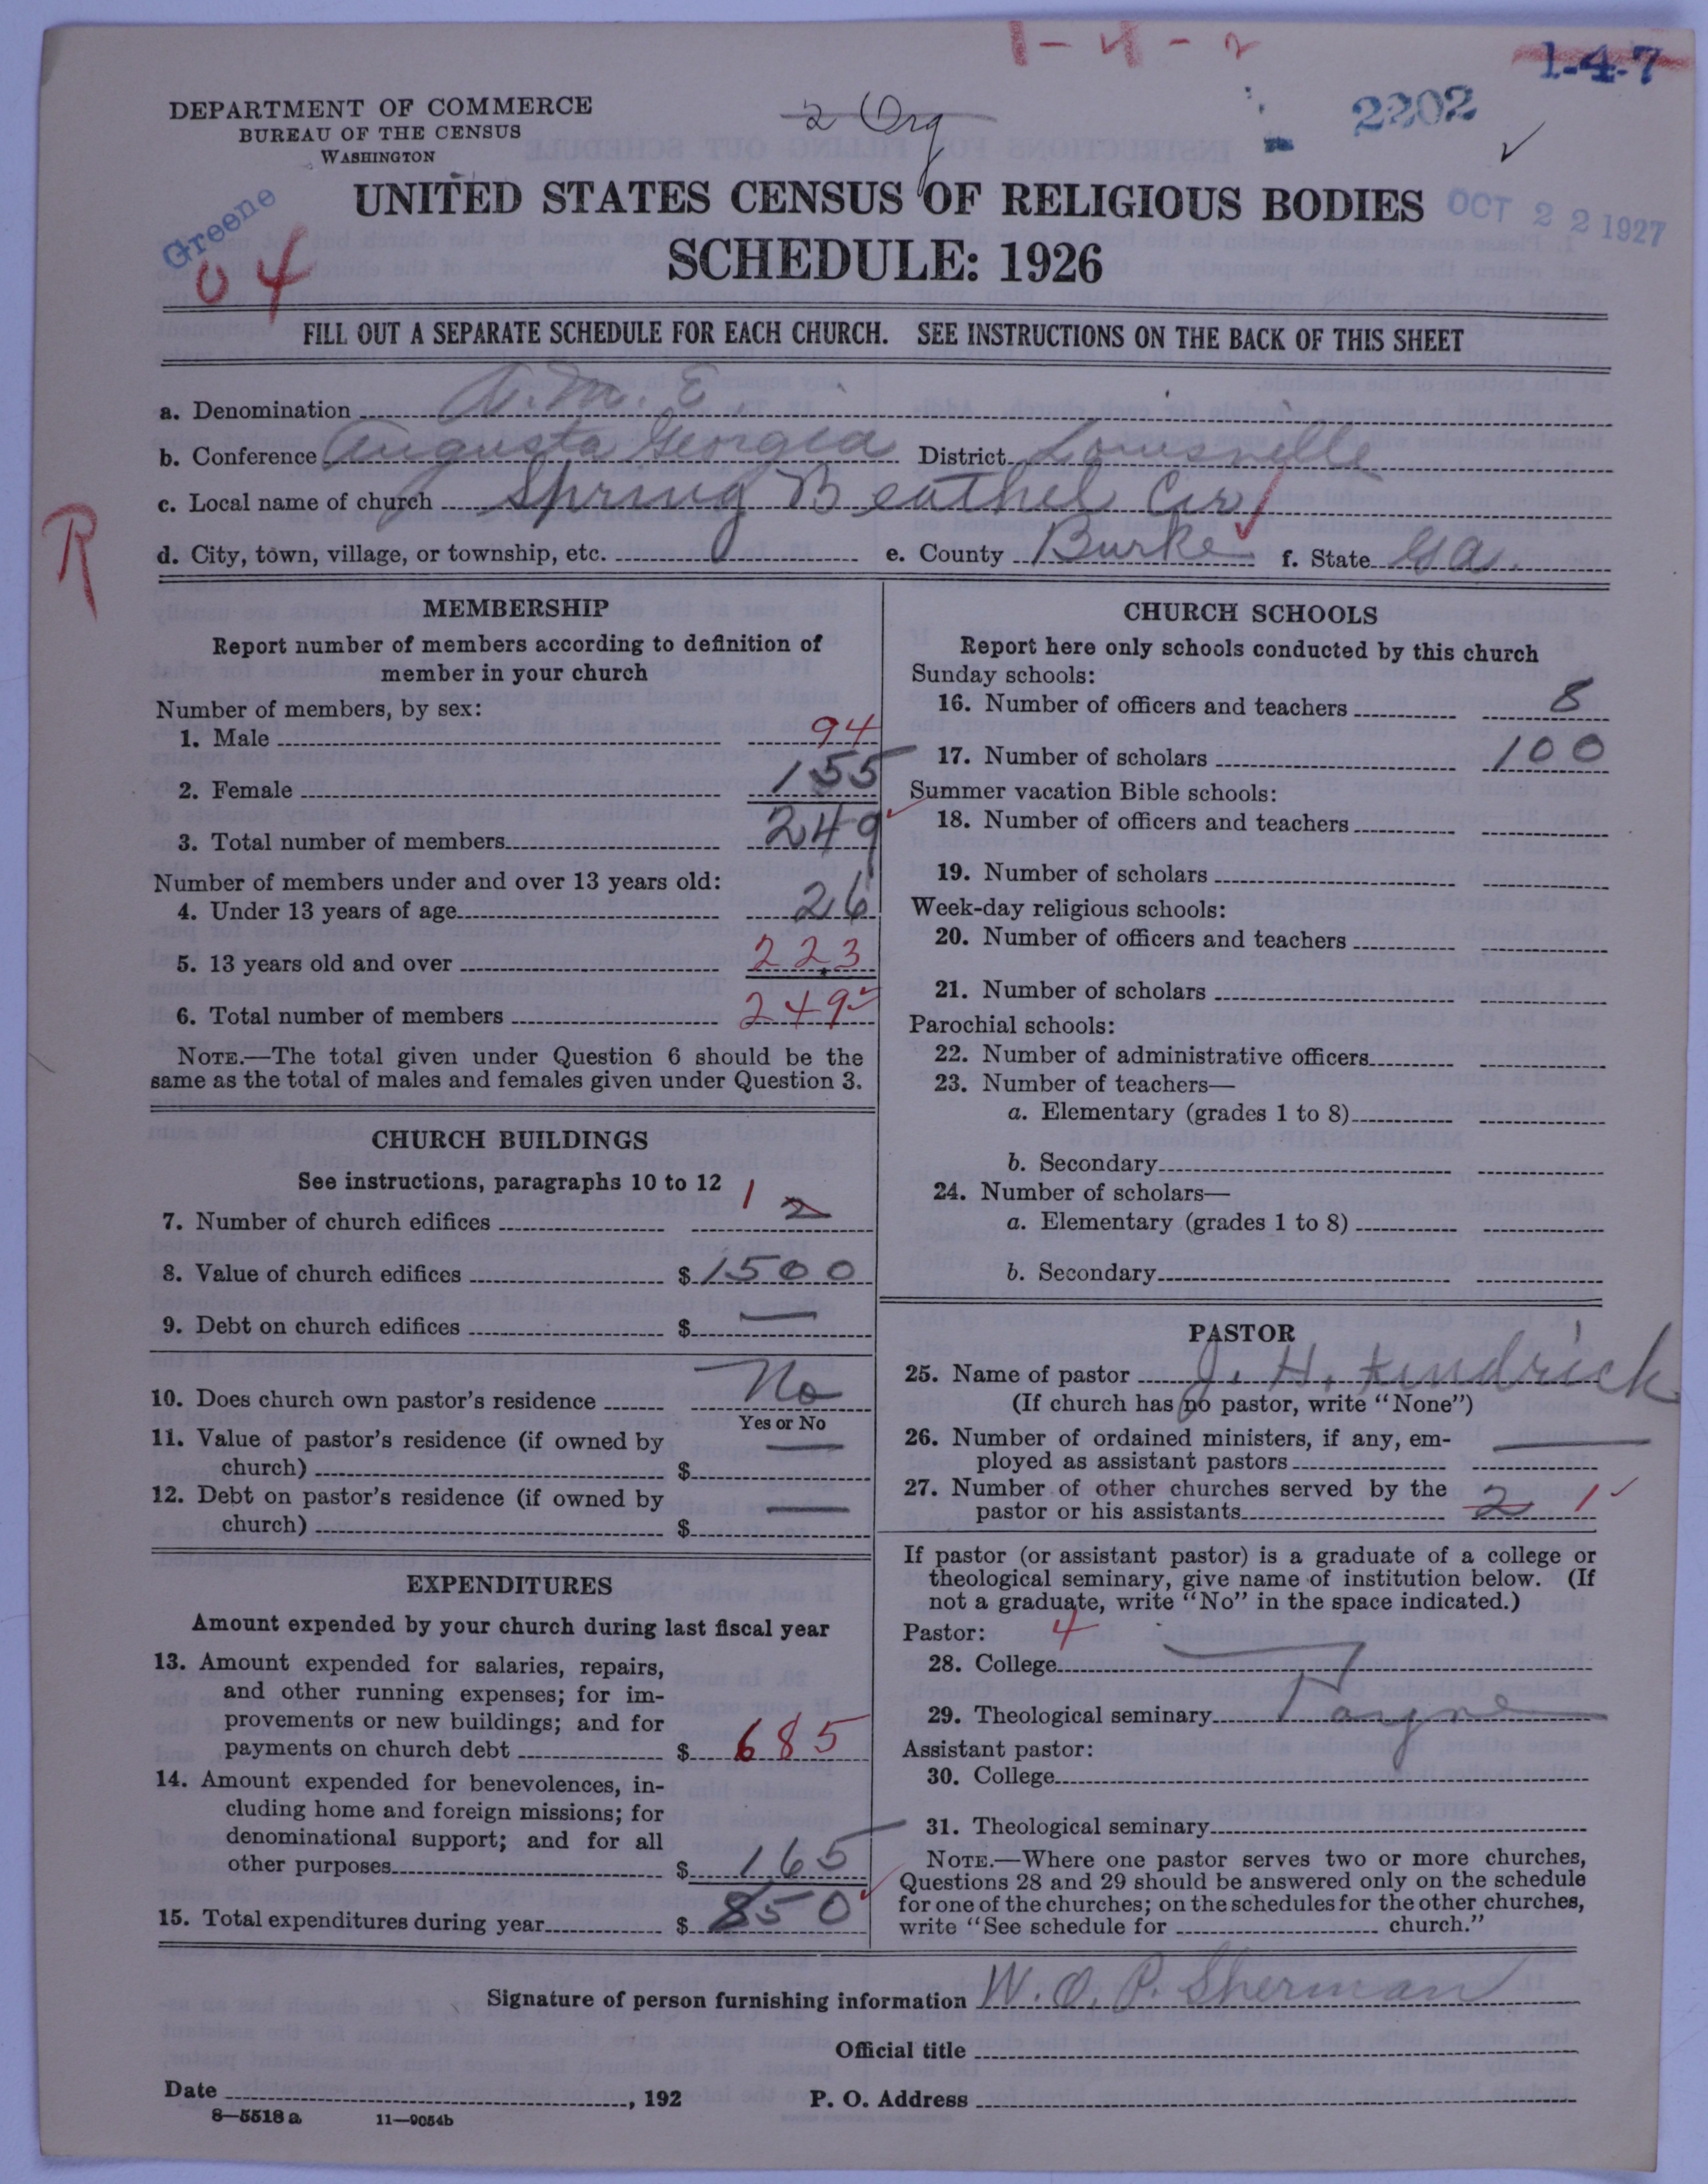 1-4-2
1-4-7
2 Org
2202
DEPARTMENT OF COMMERCE
BUREAU OF THE CENSUS
WASHINGTON
Greene
04
UNITED STATES CENSUS OF RELIGIOUS BODIES
OCT 22 1927
SCHEDULE: 1926
FILL OUT A SEPARATE SCHEDULE FOR EACH CHURCH. SEE INSTRUCTIONS ON THE BACK OF THIS SHEET
a. Denomination A. M. E.
b. Conference Augusta Georgia District Louisville
c. Local name of church Spring Beathel Cir
R
d. City, town, village, or township, etc. e. County Burke f. State Ga.
MEMBERSHIP
Report number of members according to definition of
member in your church
Number of members, by sex:
1. Male 94
2. Female 155
3. Total number of members 249
Number of members under and over 13 years old:
4. Under 13 years of age 26
5. 13 years old and over 223
6. Total number of members 249
NOTE.—The total given under Question 6 should be the
same as the total of males and females given under Question 3.
CHURCH BUILDINGS
See instructions, paragraphs 10 to 12
7. Number of church edifices 1 2
8. Value of church edifices $ 1500
9. Debt on church edifices $ —
10. Does church own pastor's residence No
Yes or No
11. Value of pastor's residence (if owned by
church) $ —
12. Debt on pastor's residence (if owned by
church) $ —
EXPENDITURES
Amount expended by your church during last fiscal year
13. Amount expended for salaries, repairs,
and other running expenses; for im-
provements or new buildings; and for
payments on church debt $ 685
14. Amount expended for benevolences, in-
cluding home and foreign missions; for
denominational support; and for all
other purposes $ 165
15. Total expenditures during year $ 850
CHURCH SCHOOLS
Report here only schools conducted by this church
Sunday schools:
16. Number of officers and teachers 8
17. Number of scholars 100
Summer vacation Bible schools:
18. Number of officers and teachers
19. Number of scholars
Week-day religious schools:
20. Number of officers and teachers
21. Number of scholars
Parochial schools:
22. Number of administrative officers
23. Number of teachers—
a. Elementary (grades 1 to 8)
b. Secondary
24. Number of scholars—
a. Elementary (grades 1 to 8)
b. Secondary
PASTOR
25. Name of pastor J. H. Kindrick
(If church has no pastor, write "None")
26. Number of ordained ministers, if any, em-
ployed as assistant pastors —
27. Number of other churches served by the
pastor or his assistants 2 1
If pastor (or assistant pastor) is a graduate of a college or
theological seminary, give name of institution below. (If
not a graduate, write "No" in the space indicated.)
Pastor: 4
28. College —
29. Theological seminary Payne
Assistant pastor:
30. College
31. Theological seminary
NOTE.—Where one pastor serves two or more churches,
Questions 28 and 29 should be answered only on the schedule
for one of the churches; on the schedules for the other churches,
write "See schedule for church."
Signature of person furnishing information W. O. P. Sherman
Official title
Date , 192 P. O. Address
8—5518 a 11—9054b